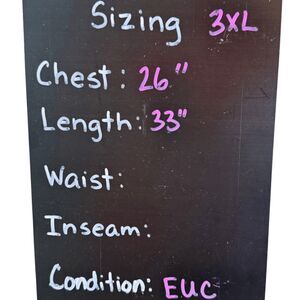 Sizing 3XL
Chest: 26"
Length: 33"
Waist:
Inseam:
Condition: EUC